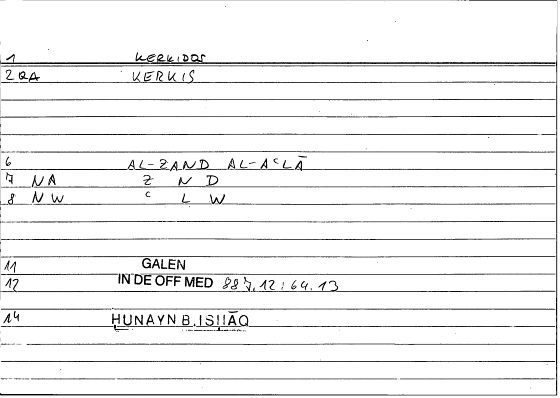 1 KERKIDOS
2 QA KERKIS
6 AL-ZAND AL-AᶜLĀ
7 NA Z N D
8 NW ᶜ L W
11 GALEN
12 IN DE OFF MED 887.12 : 64.13
14 HUNAYN B. ISHĀQ